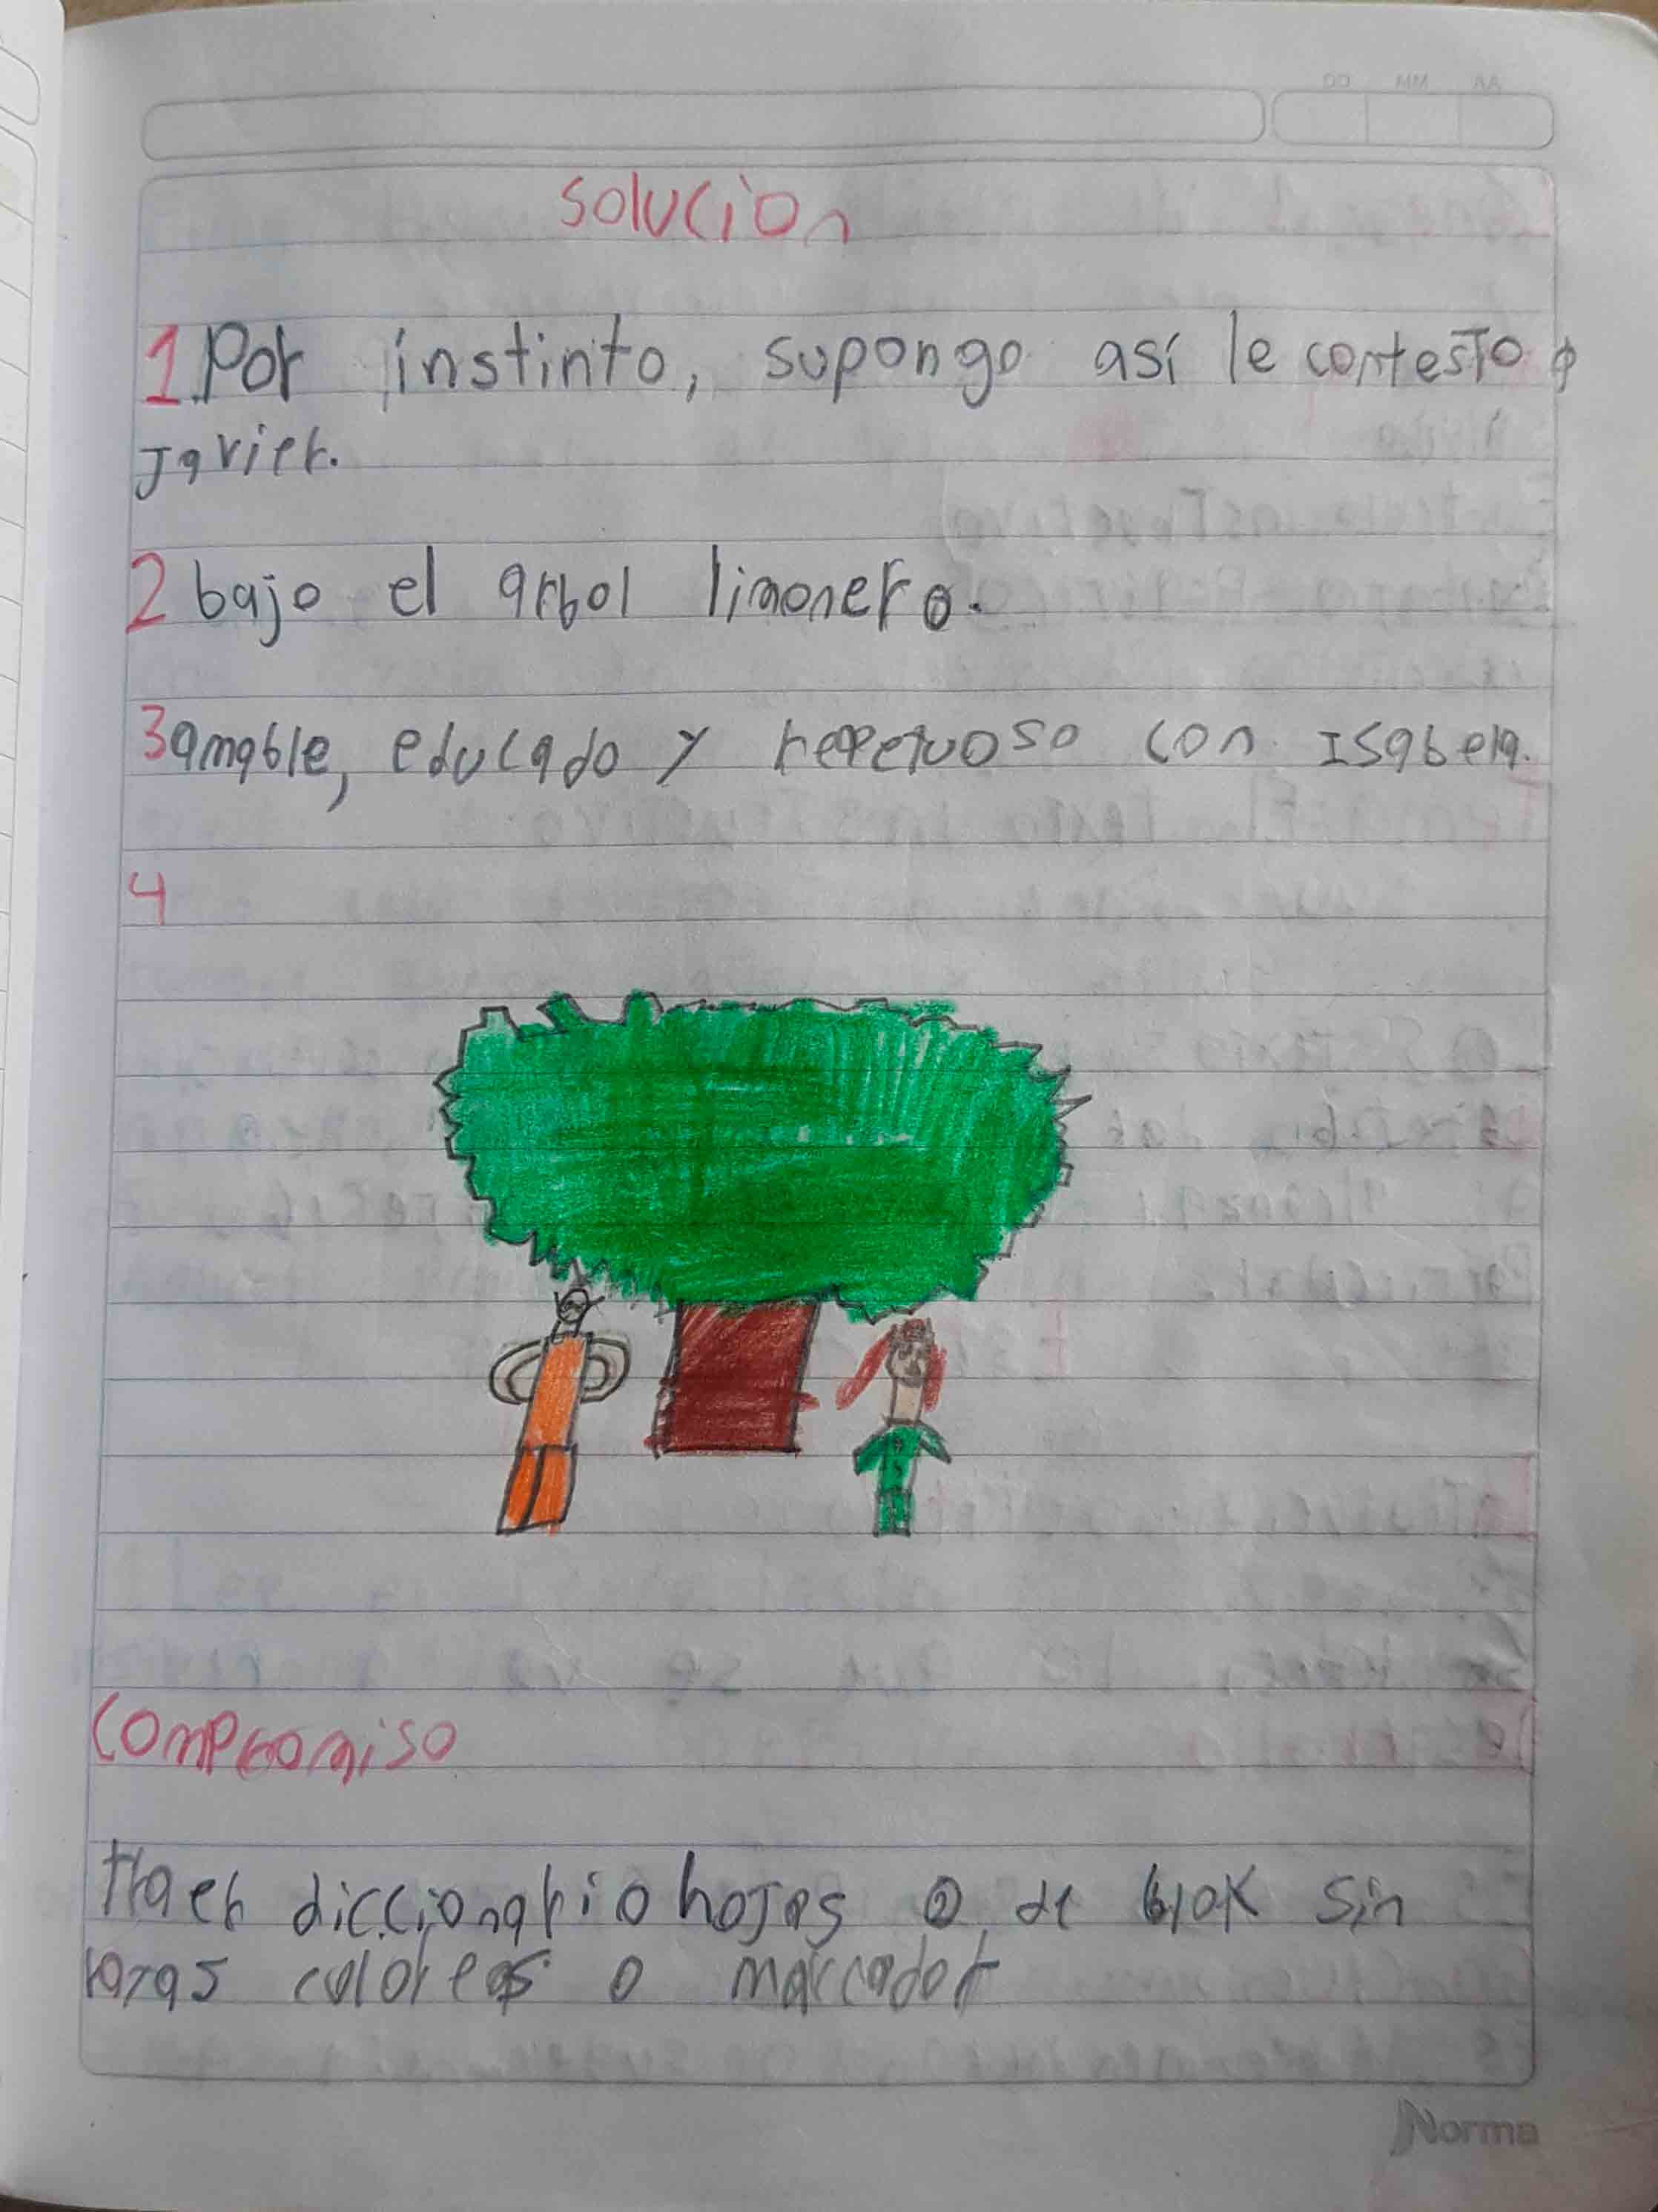 AA MM DD
solucion
1 Por instinto, supongo así le contesto a
Javier.
2 bajo el arbol limonero.
3 amable, educado y repetuoso con Isabela.
4
compromiso
traer diccionario hojas 2 de blok sin
rayas colores o marcador
Norma